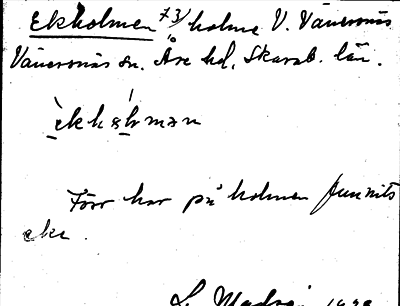 Ekholmen 73/ holme V. Vänersnäs
Vänersnäs sn. Åse hd, Skarab. län.
ekhɑlman
Förr har på holmen funnits
eke.